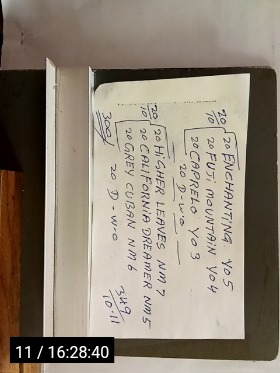 20/10
20 ENCHANTING Y05
20 FUJI MOUNTAIN Y04
20 CAPRELO Y03
20 D-W-O
20/10
20 HIGHER LEAVES NM7
20 CALIFORNIA DREAMER NM5
20 GREY CUBAN NM6
20 D-W-O
300
349
10.11
11 / 16:28:40